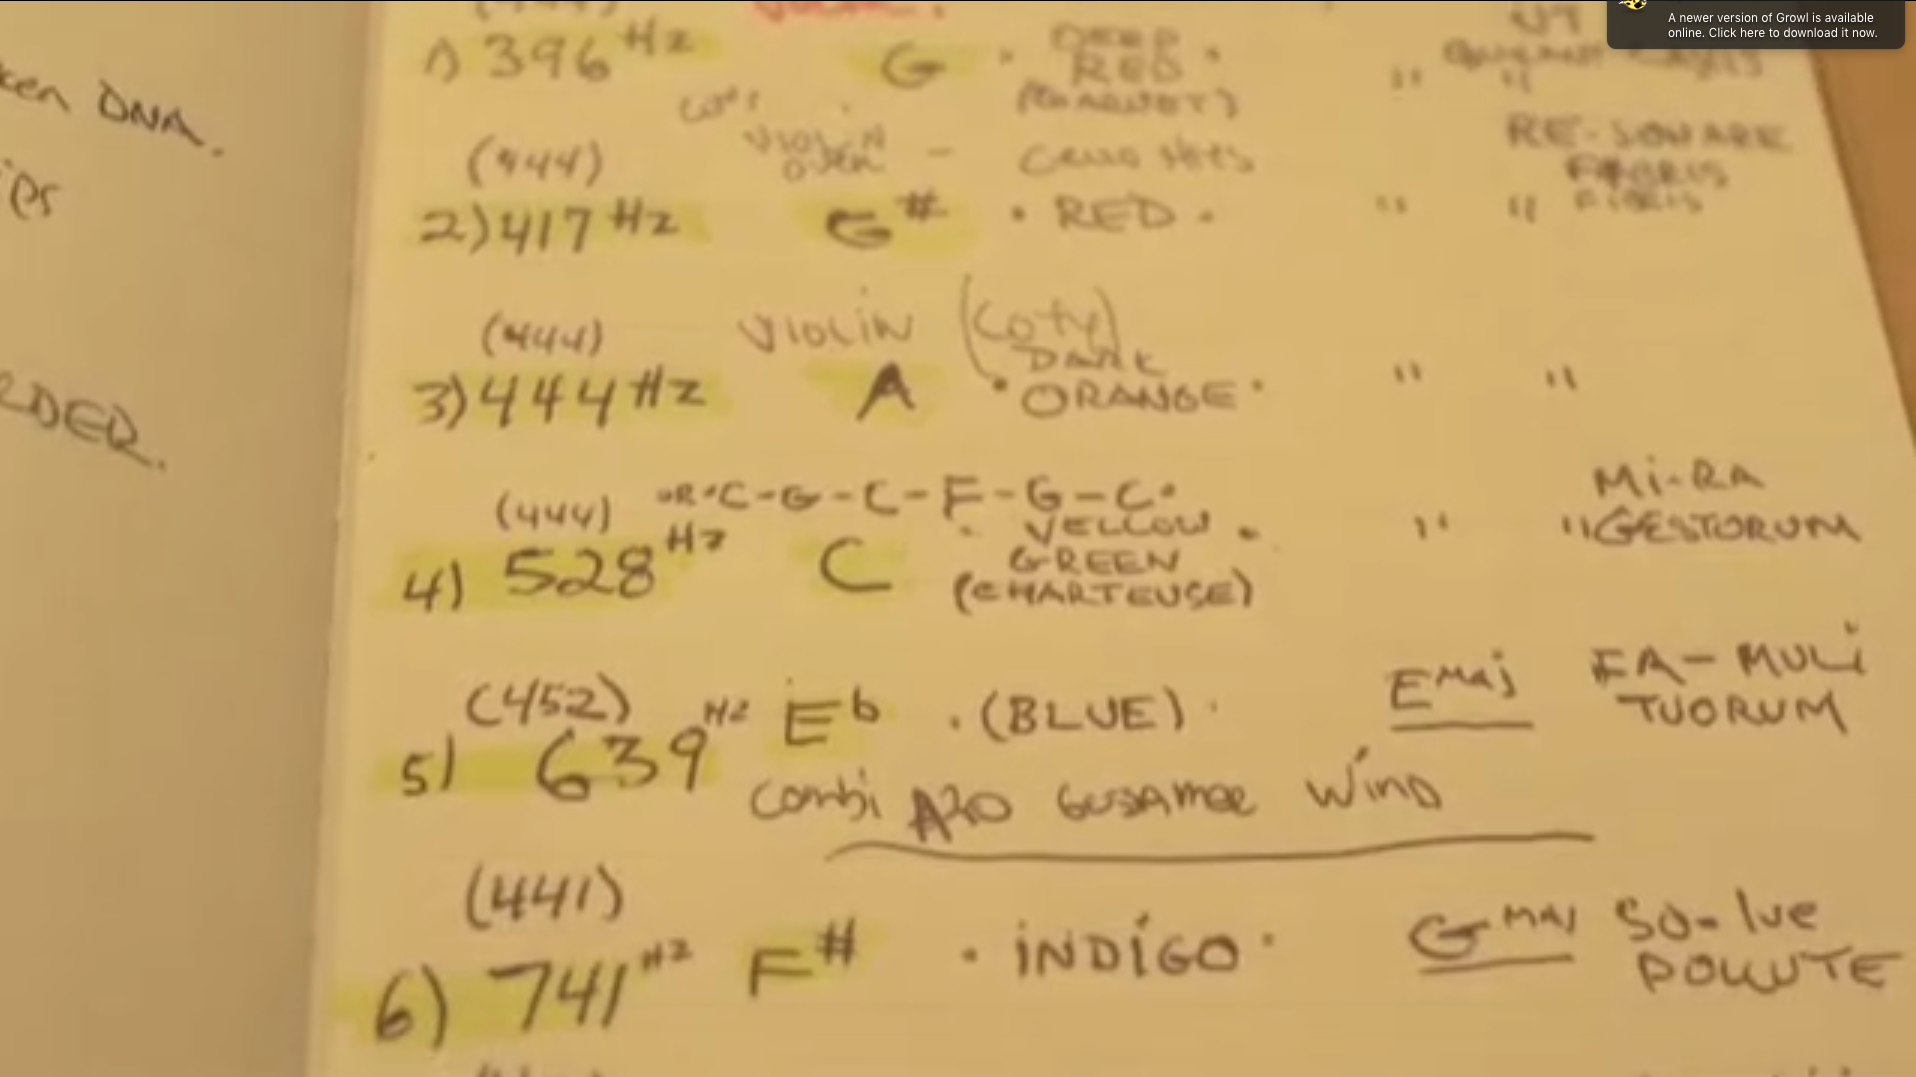 A newer version of Growl is available
online. Click here to download it now.
ken DNA.
RDER.
1) 396 Hz G · DEEP RED · " "
(GARNET)
(444) VIOLIN - CELLO HITS RE-SONARE
FIBRIS
2) 417 Hz G# · RED · " " FIBRIS
(444) VIOLIN (COTY)
DARK
3) 444 Hz A · ORANGE · " "
(444) OR · C-G-C-F-G-C · Mi-RA
4) 528 Hz C · YELLOW · " " GESTORUM
GREEN
(CHARTEUSE)
(452)
5) 639 Hz Eb · (BLUE) · Emaj FA-MULi
TUORUM
Combi WiND
(441)
6) 741 Hz F# · iNDiGO · GMAJ SO-lve
POLLUTE